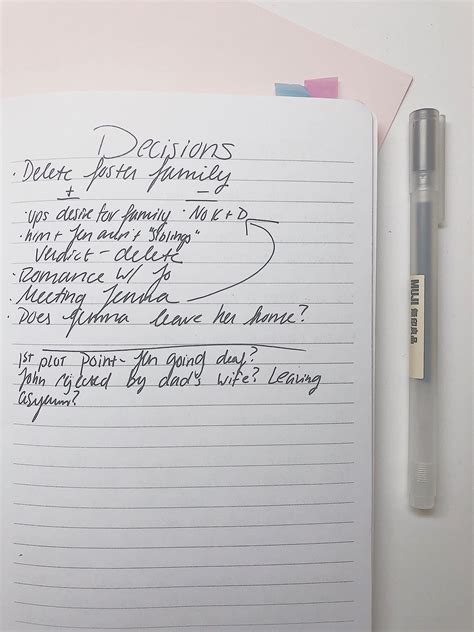 Decisions
· Delete foster family
+ −
· ups desire for family · No K + D
· him + Jen aunt + "siblings"
verdict - delete
· Romance w/ Jo
· Meeting Jemma
· Does Jemma leave her home?
1st plot point - Jen going deaf?
John rejected by dad's wife? Leaving
asylum?
MUJI 無印良品